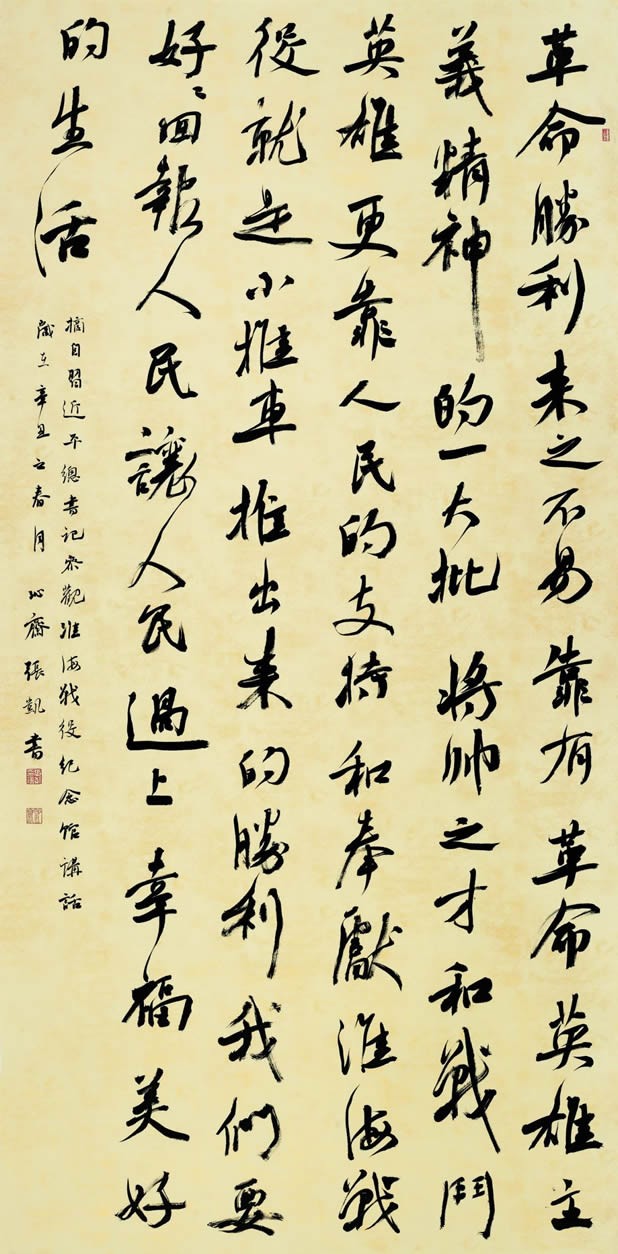 革命勝利来之不易靠有革命英雄主
義精神的一大批将帅之才和戰鬥
英雄更靠人民的支持和奉獻淮海戰
役就是小推車推出来的勝利我們要
好〻回報人民讓人民過上幸福美好
的生活
摘自習近平總書記参觀淮海戰役纪念馆講話
歲在辛丑之春月沁齋張凱書